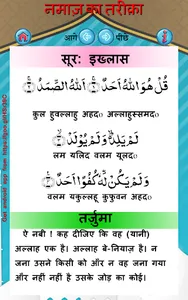 नमाज़ का तरीक़ा
आगे पीछे
सूर: इख्लास
قُلْ هُوَ اللّٰهُ اَحَدٌ ۝ اَللّٰهُ الصَّمَدُ ۝
कुल हुवल्लाहु अहद० अल्लाहुस्समद०
لَمْ يَلِدْ وَلَمْ يُوْلَدْ ۝
लम यलिद वलम यूलद०
وَلَمْ يَكُنْ لَّهٗ كُفُوًا اَحَدٌ ۝
वलम यकुल्लहू कुफुवन अहद०
तर्जुमा
ऐ नबी ! कह दीजिए कि वह (यानी)
अल्लाह एक है। अल्लाह बे-नियाज़ है। न
जना उसने किसी को और न वह जना गया
और नहीं नहीं है उसके जोड़ का कोई।